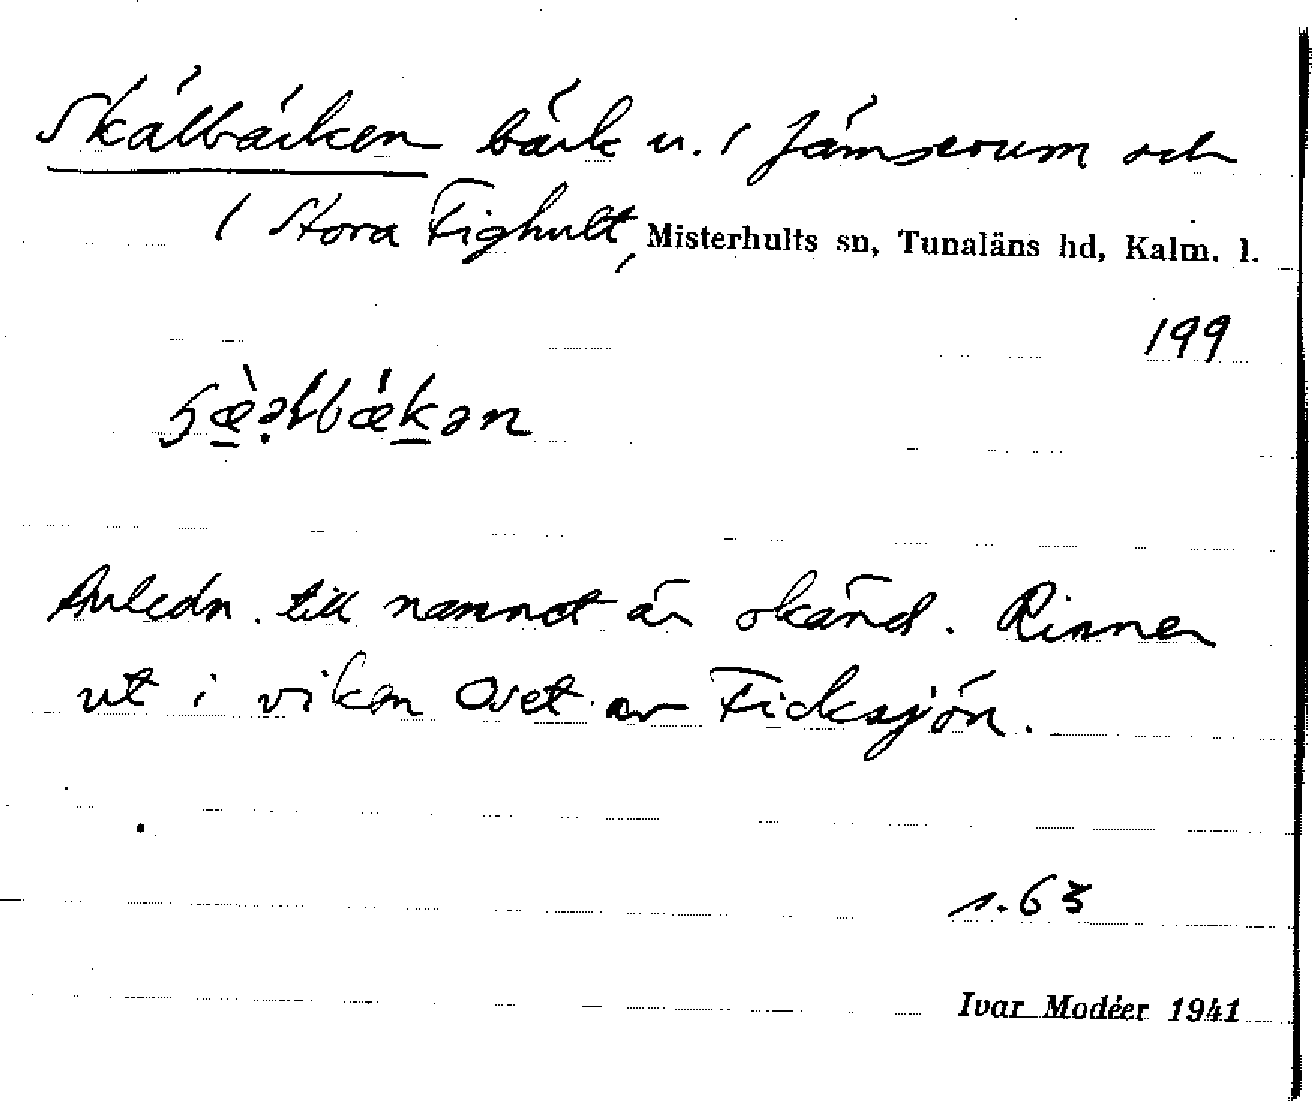 Skälbäcken bäck u. / Jämserum och
/ Stora Fighult, Misterhults sn, Tunaläns hd, Kalm. l.
199
Anledn. till namnet är okänd. Rinner
ut i viken Ovet av Ficksjön.
s. 63
Ivar Modéer 1941